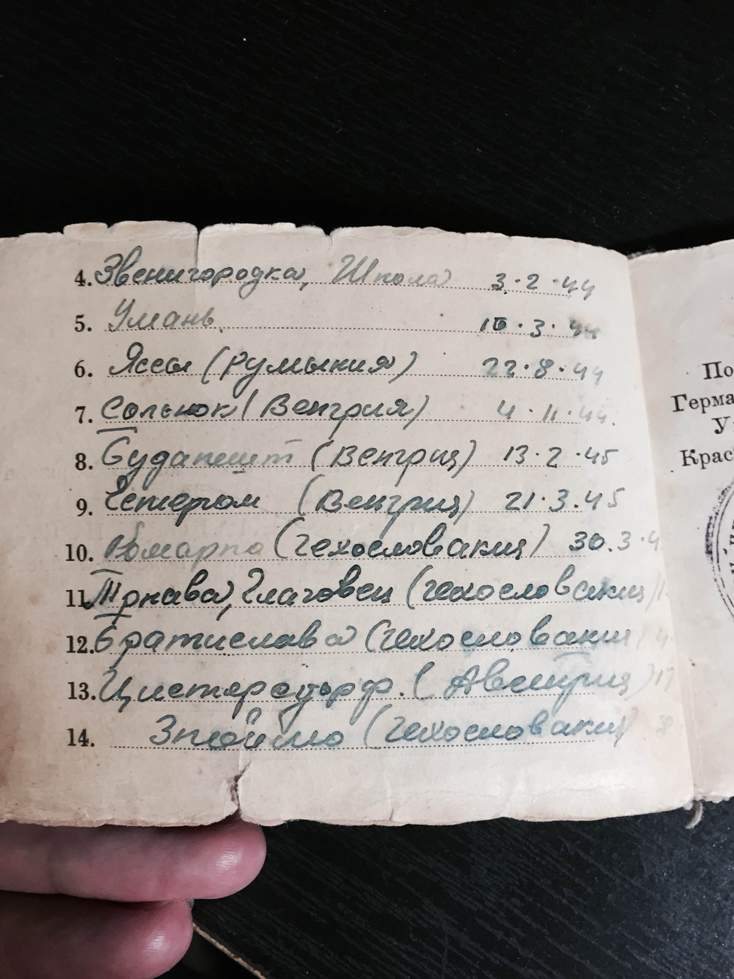 4. Звенигородка, Шпола 3·2·44
5. Умань 10·3·44
6. Яссы (Румыния) 22·8·44
7. Сольнок (Венгрия) 4·11·44.
8. Будапешт (Венгрия) 13·2·45
9. Естергом (Венгрия) 21·3·45
10. Комарно (Чехословакия) 30·3·4
11. Трнава, Глаговец (Чехословакия) 1
12. Братислава (Чехословакия) 4
13. Цистерсдорф. (Австрия) 17
14. Зноймо (Чехословакия) 8
По
Герма
У
Крас